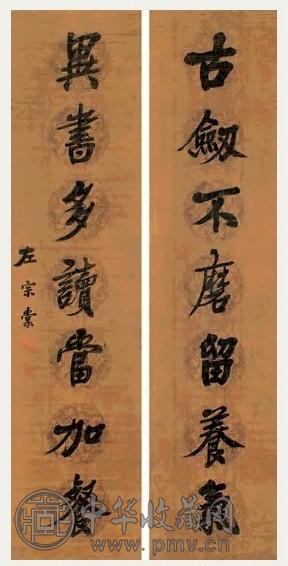 古劔不磨留養氣
異書多讀當加餐
左宗棠
中华收藏网
www.pmv.cn